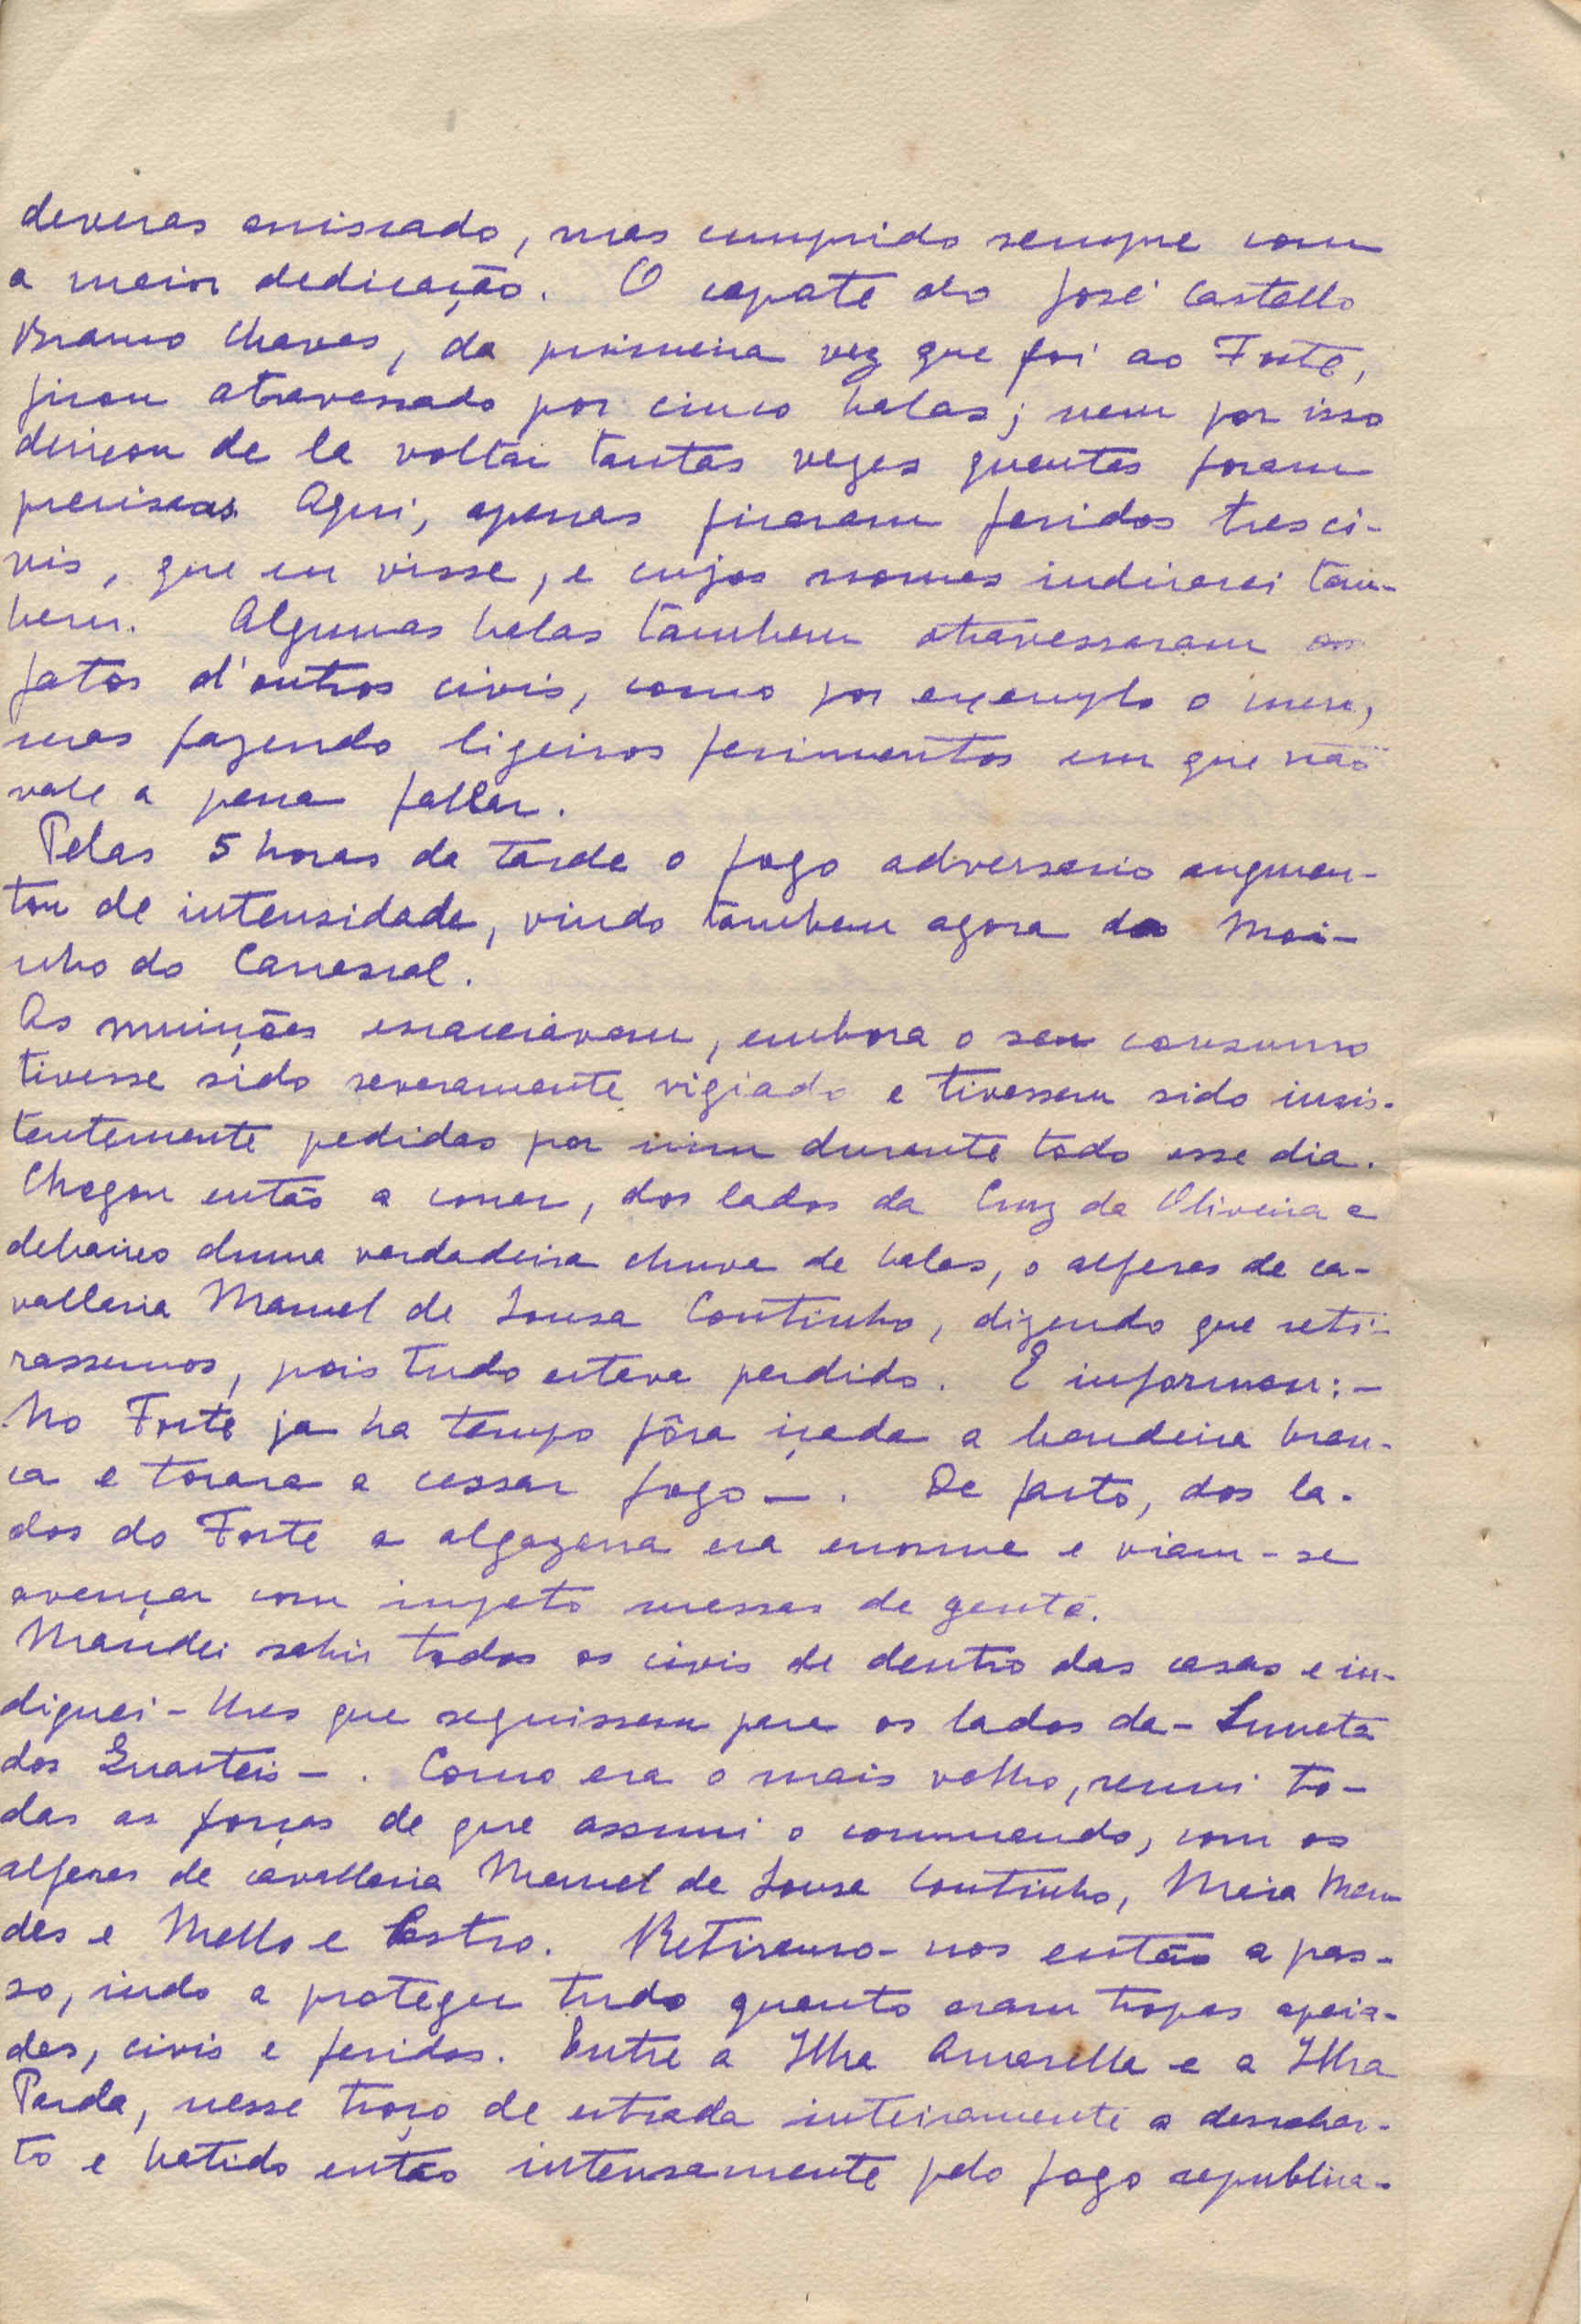 deveras arriscado, mas cumprido sempre com
a maior dedicação. O capote do José Castello
Branco Chaves, da primeira vez que foi ao Forte,
ficou atravessado por cinco balas; nem por isso
deixou de la voltar tantas vezes quantas foram
precisas. Aqui, apenas ficaram feridos tres ci-
vis, que eu visse, e cujos nomes indicarei tam-
bem. Algumas balas tambem atravessaram os
fatos d'outros civis, como por exemplo o meu,
mas fazendo ligeiros ferimentos em que não
vale a pena fallar.
Pelas 5 horas da tarde o fogo adversario augmen-
tou de intensidade, vindo tambem agora do Moi-
nho do Carrascal.
As munições escaceiavam, embora o seu consumo
tivesse sido severamente vigiado e tivessem sido insis-
tentemente pedidas por mim durante todo esse dia.
Chegou então a correr, dos lados da Cruz da Oliveira e
debaixo duma verdadeira chuva de balas, o alferes de ca-
vallaria Manuel de Sousa Coutinho, dizendo que reti-
rassemos, pois tudo estava perdido. E informou: -
No Forte ja ha tempo fôra içada a bandeira bran-
ca e tocara a cessar fogo - . De facto, dos la-
dos do Forte a algazarra era enorme e viam-se
avançar com impeto massas de gente.
Mandei sahir todos os civis de dentro das casas e in-
diquei-lhes que seguissem para os lados da - Luneta
dos Quarteis - . Como era o mais velho, reuni to-
das as forças de que assumi o commando, com os
alferes de cavallaria Manuel de Sousa Coutinho, Maia Men
des e Mello e Castro. Retiramo-nos então a pas-
so, indo a proteger tudo quanto eram tropas apeia-
das, civis e feridos. Entre a Ilha Amarella e a Ilha
Parda, nesse troço de estrada inteiramente a descober-
to e batido então intensamente pelo fogo republica-